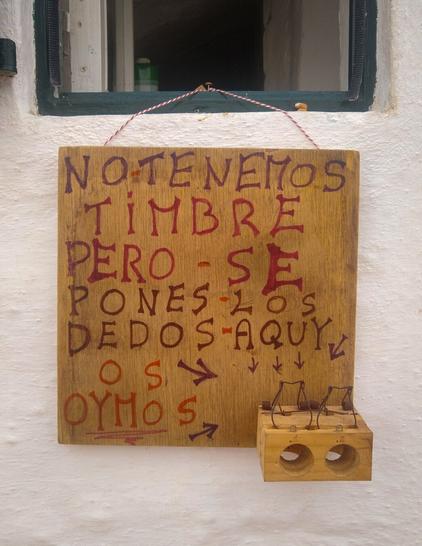 NO-TENEMOS
TiMBRE
PERO-SE
PONES-LOS
DEDOS-AQUY
OS
OYMOS